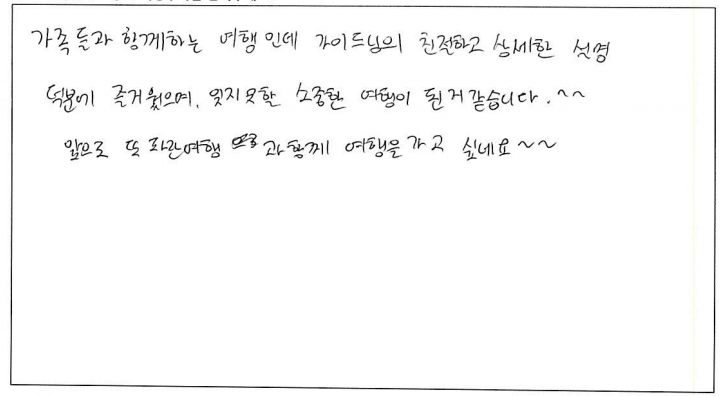 가족들과 함께하는 여행인데 가이드님의 친절하고 상세한 설명
덕분에 즐거웠으며, 잊지못할 소중한 여행이 된거같습니다.^^
앞으로 또 파란여행과 함께 여행을 가고 싶네요~~